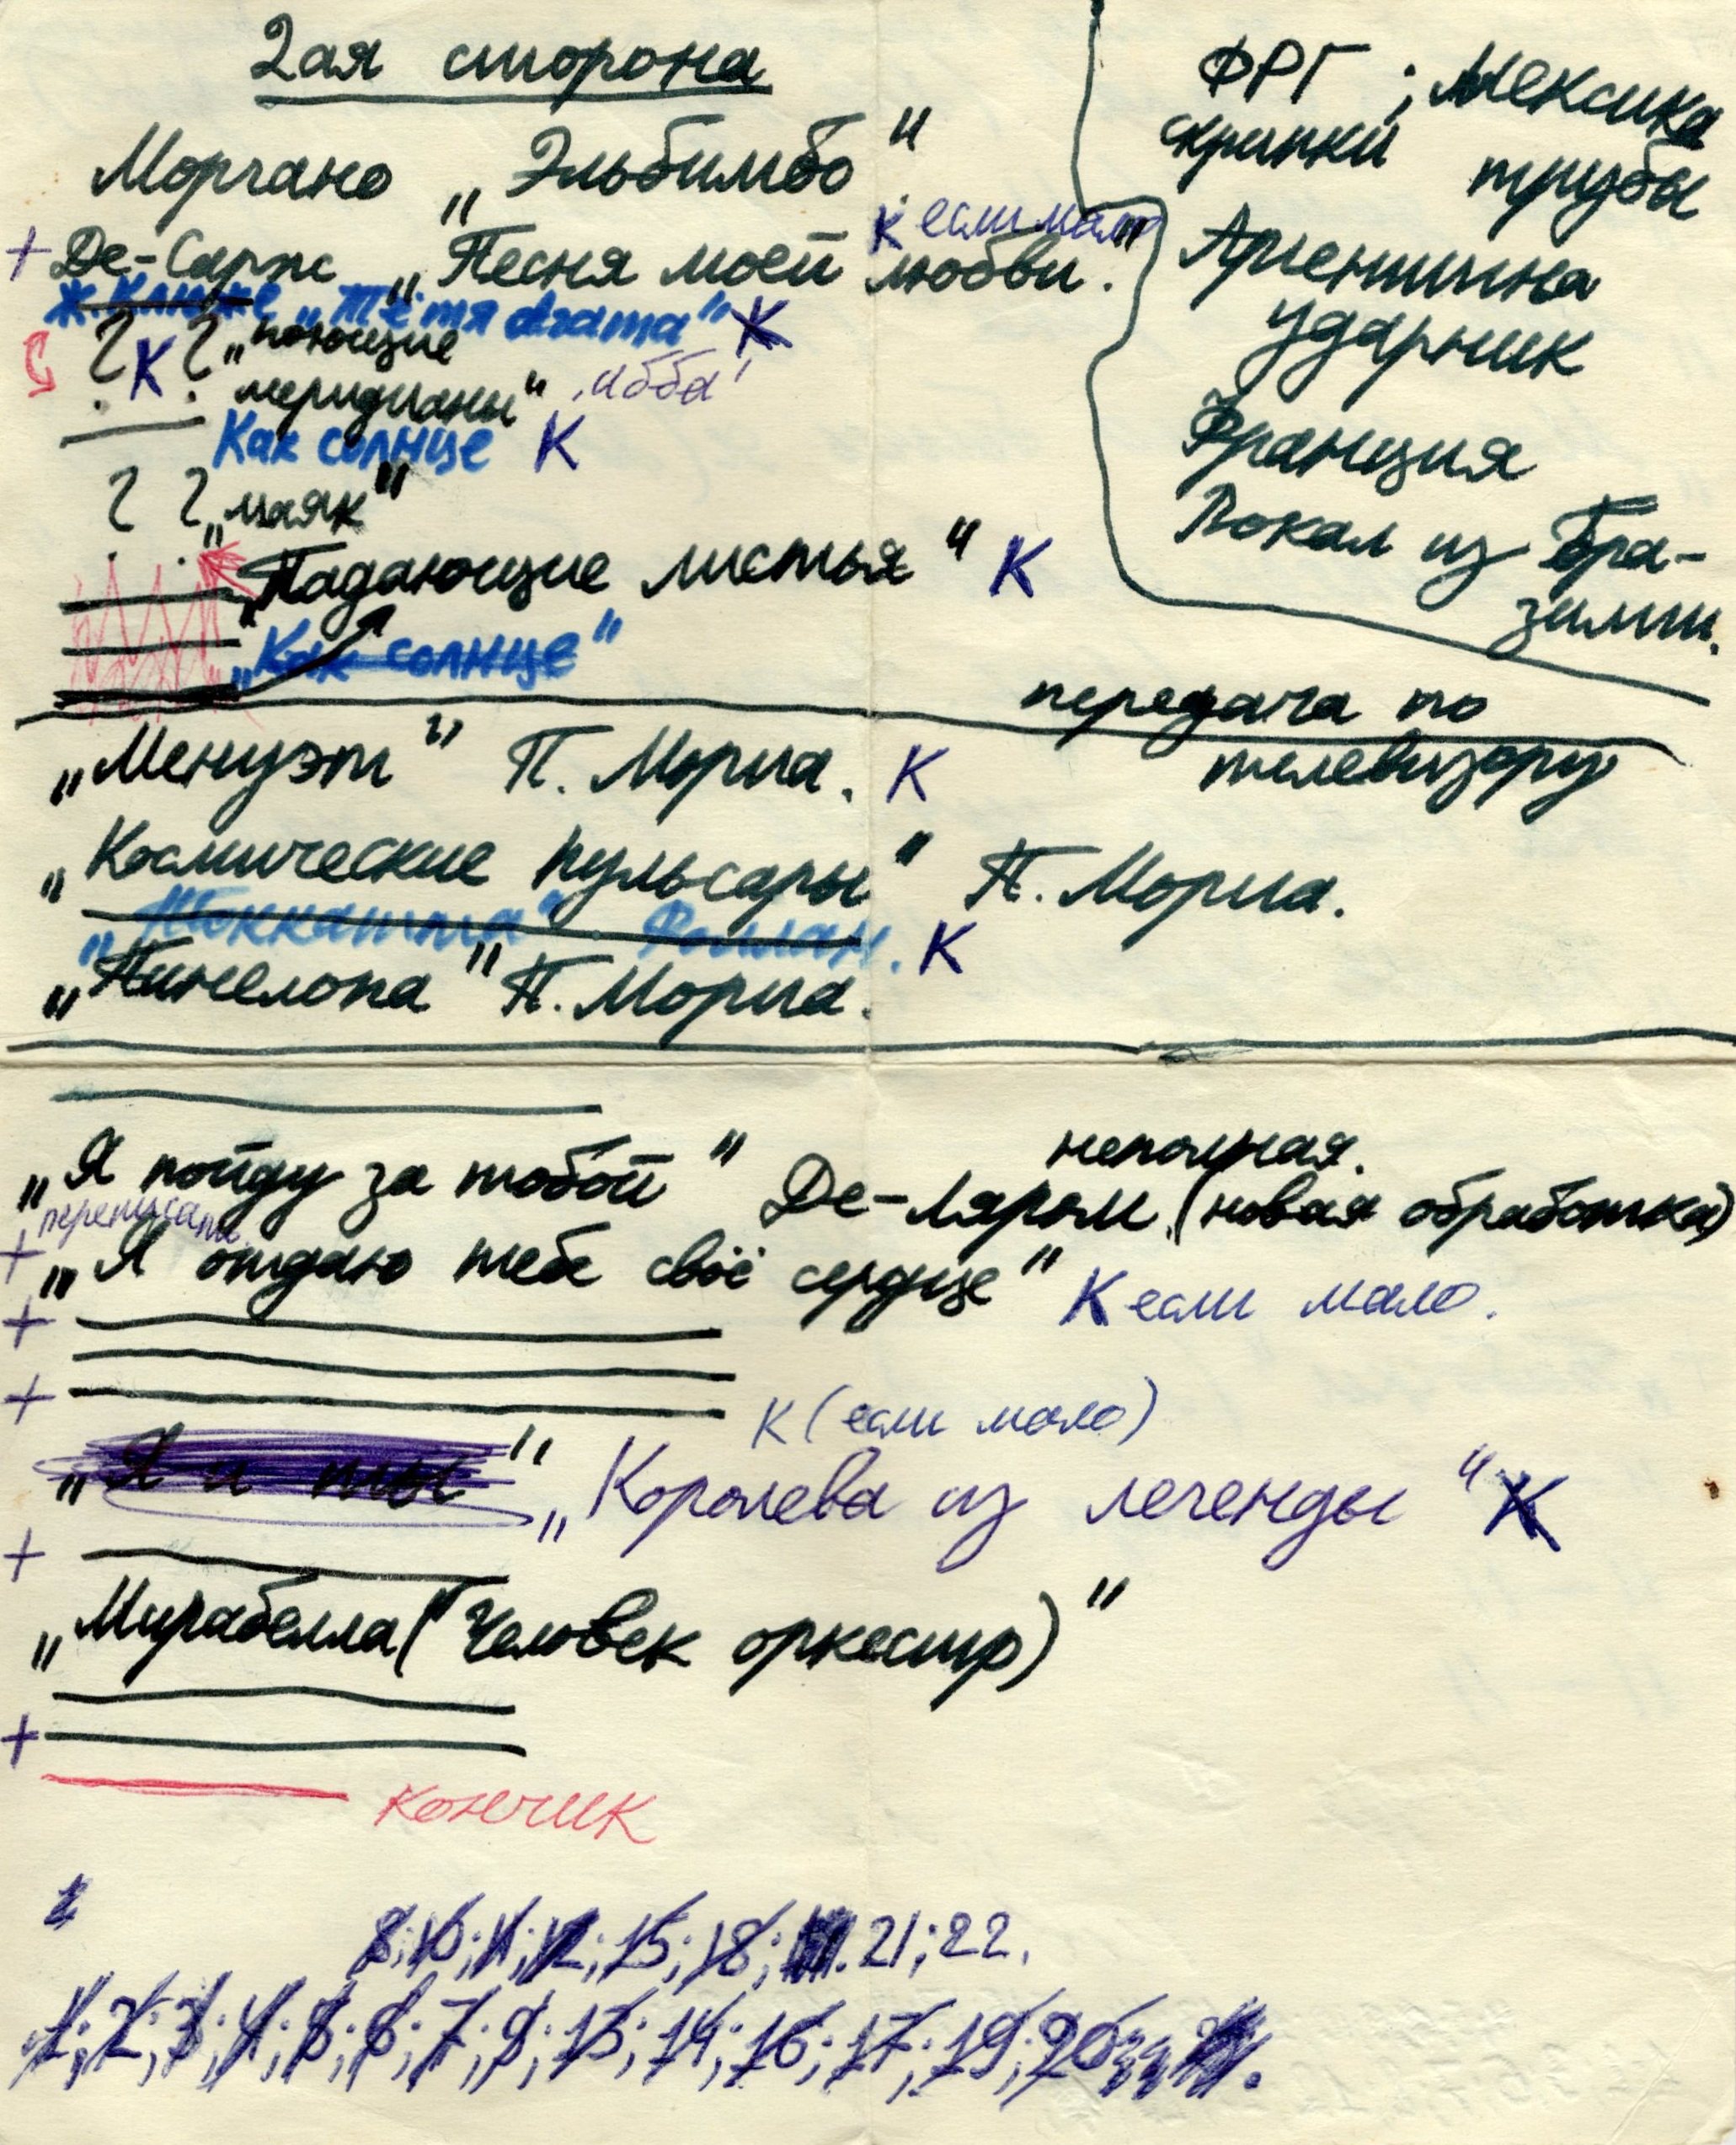 2ая сторона
Морчано „Эльбимбо"
К если мало
+ Де-Сарпс „Песня моей любви."
„Тётя Агата" К
? К ? „поющие
меридианы"
Как солнце К
? ? „маяк"
„Падающие листья" К
„Как солнце"
ФРГ ; Мексика
скрипки трубы
Аргентина
ударник
Франция
Вокал из Бра-
зилии.
передача по
телевизору
„Менуэт" П. Мориа. К
„Космические пульсары" П. Мориа.
„Токката" К
„Пинелопа" П. Мориа.
неполная.
„Я пойду за тобой" Де-Ляром (новая обработка)
переписать
+ „Я отдаю тебе своё сердце" К если мало.
+
+
К (если мало)
„Я и ты" „Королева из легенды" К
+
„Мирабелла (Человек оркестр)"
+
кончик
8; 10; 11; 12; 15; 18; 21; 22.
1; 2; 3; 4; 5; 6; 7; 9; 13; 14; 16; 17; 19; 20